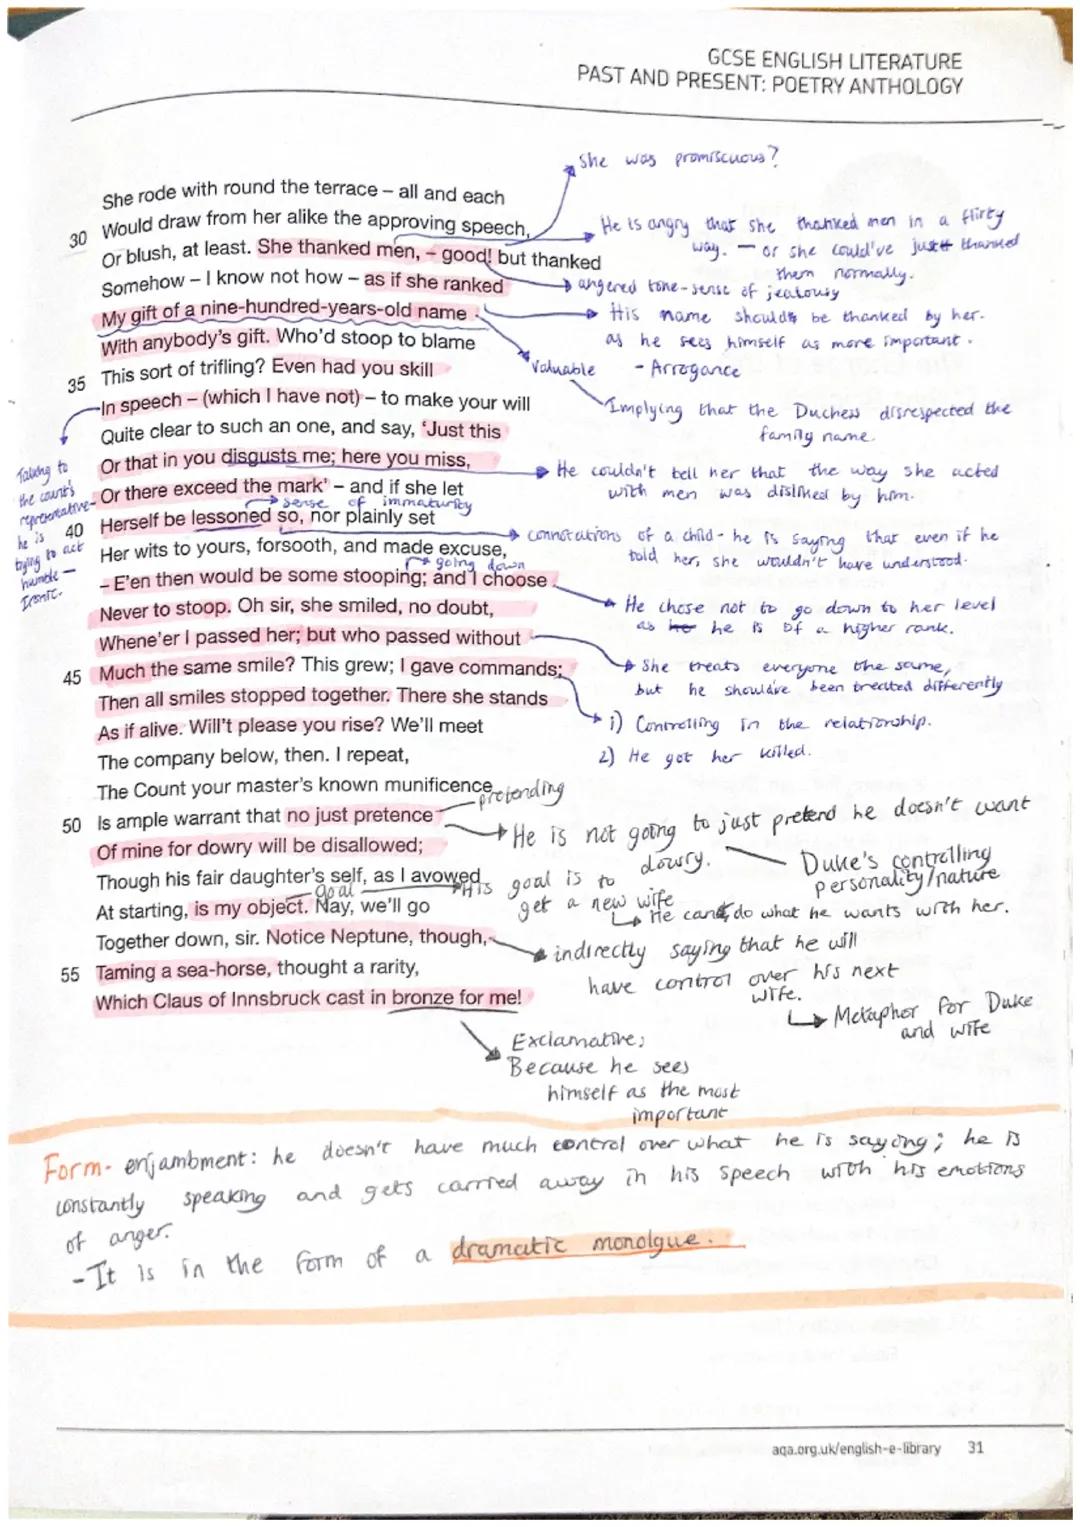 GCSE ENGLISH LITERATURE
PAST AND PRESENT: POETRY ANTHOLOGY
She was promiscuous?
She rode with round the terrace – all and each
30 Would draw from her alike the approving speech,
Or blush, at least. She thanked men, – good! but thanked
Somehow – I know not how – as if she ranked
My gift of a nine-hundred-years-old name
With anybody's gift. Who'd stoop to blame
35 This sort of trifling? Even had you skill
In speech – (which I have not) – to make your will
Quite clear to such an one, and say, 'Just this
Or that in you disgusts me; here you miss,
Or there exceed the mark' – and if she let
sense of immaturity
40 Herself be lessoned so, nor plainly set
Her wits to yours, forsooth, and made excuse,
going down
– E'en then would be some stooping; and I choose
Never to stoop. Oh sir, she smiled, no doubt,
Whene'er I passed her; but who passed without
45 Much the same smile? This grew; I gave commands;
Then all smiles stopped together. There she stands
As if alive. Will't please you rise? We'll meet
The company below, then. I repeat,
The Count your master's known munificence
pretending
50 Is ample warrant that no just pretence
Of mine for dowry will be disallowed;
Though his fair daughter's self, as I avowed
goal
At starting, is my object. Nay, we'll go
Together down, sir. Notice Neptune, though,
55 Taming a sea-horse, thought a rarity,
Which Claus of Innsbruck cast in bronze for me!
He is angry that she thanked men in a flirty
way. – or she could've just thanked
them normally.
angered tone-sense of jealousy
His name should be thanked by her.
as he sees himself as more important.
Valuable
- Arrogance
Implying that the Duchess disrespected the
family name.
Talking to
the count's
representative-
he is
trying to act
humble –
Ironic.
He couldn't tell her that the way she acted
with men was disliked by him.
connotations of a child - he is saying that even if he
told her, she wouldn't have understood.
He chose not to go down to her level
as her he is of a higher rank.
She treats everyone the same,
but he should've been treated differently
1) Controlling in the relationship.
2) He got her killed.
He is not going to just pretend he doesn't want
dowry.
Duke's controlling
personality/nature
His goal is to
get a new wife
He can do what he wants with her.
indirectly saying that he will
have control over his next
wife.
Metaphor for Duke
and wife
Exclamative;
Because he sees
himself as the most
important
Form- enjambment: he doesn't have much control over what he is saying; he is
constantly speaking and gets carried away in his speech with his emotions
of anger.
- It is in the form of a dramatic monolgue.
aqa.org.uk/english-e-library 31